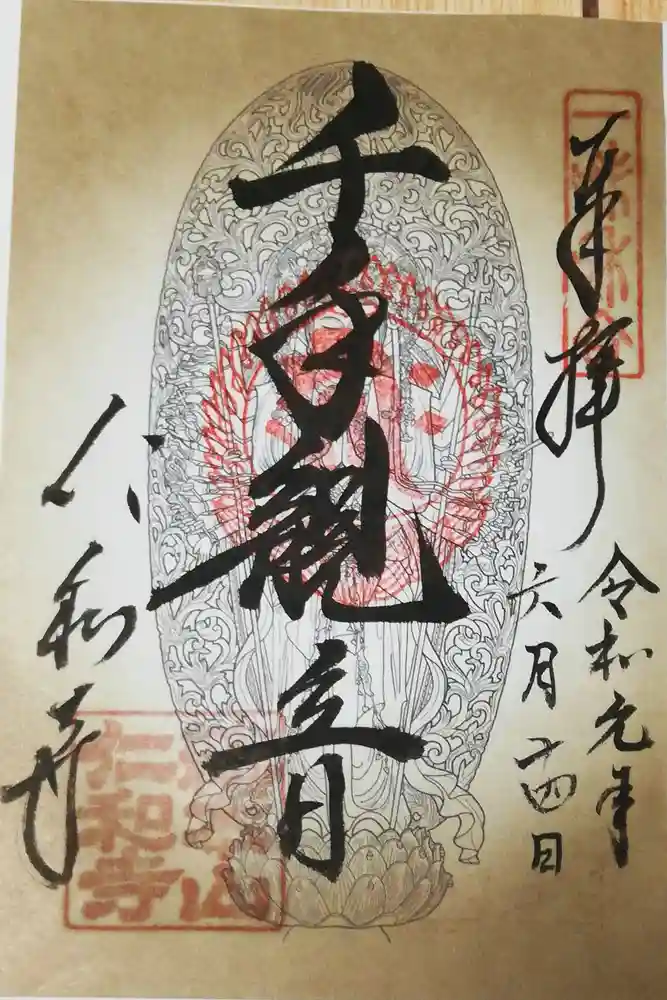 奉拝
令和元年
六月廿四日
千手観音
仁和寺
仁和寺